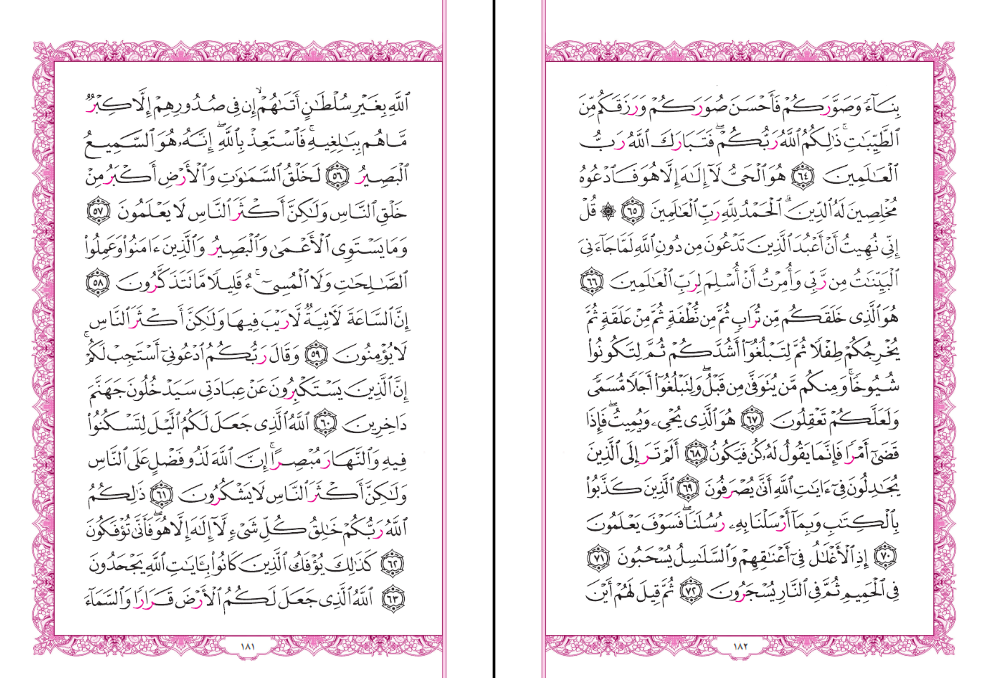 ٱللَّهِ بِغَيْرِ سُلْطَٰنٍ أَتَىٰهُمْ ۙ إِن فِى صُدُورِهِمْ إِلَّا كِبْرٌ
مَّا هُم بِبَٰلِغِيهِ ۚ فَٱسْتَعِذْ بِٱللَّهِ ۖ إِنَّهُۥ هُوَ ٱلسَّمِيعُ
ٱلْبَصِيرُ ٥٦ لَخَلْقُ ٱلسَّمَٰوَٰتِ وَٱلْأَرْضِ أَكْبَرُ مِنْ
خَلْقِ ٱلنَّاسِ وَلَٰكِنَّ أَكْثَرَ ٱلنَّاسِ لَا يَعْلَمُونَ ٥٧
وَمَا يَسْتَوِى ٱلْأَعْمَىٰ وَٱلْبَصِيرُ وَٱلَّذِينَ ءَامَنُوا۟ وَعَمِلُوا۟
ٱلصَّٰلِحَٰتِ وَلَا ٱلْمُسِىٓءُ ۚ قَلِيلًا مَّا تَتَذَكَّرُونَ ٥٨
إِنَّ ٱلسَّاعَةَ لَءَاتِيَةٌ لَّا رَيْبَ فِيهَا وَلَٰكِنَّ أَكْثَرَ ٱلنَّاسِ
لَا يُؤْمِنُونَ ٥٩ وَقَالَ رَبُّكُمُ ٱدْعُونِىٓ أَسْتَجِبْ لَكُمْ ۚ
إِنَّ ٱلَّذِينَ يَسْتَكْبِرُونَ عَنْ عِبَادَتِى سَيَدْخُلُونَ جَهَنَّمَ
دَاخِرِينَ ٦٠ ٱللَّهُ ٱلَّذِى جَعَلَ لَكُمُ ٱلَّيْلَ لِتَسْكُنُوا۟
فِيهِ وَٱلنَّهَارَ مُبْصِرًا ۚ إِنَّ ٱللَّهَ لَذُو فَضْلٍ عَلَى ٱلنَّاسِ
وَلَٰكِنَّ أَكْثَرَ ٱلنَّاسِ لَا يَشْكُرُونَ ٦١ ذَٰلِكُمُ
ٱللَّهُ رَبُّكُمْ خَٰلِقُ كُلِّ شَىْءٍ لَّآ إِلَٰهَ إِلَّا هُوَ ۖ فَأَنَّىٰ تُؤْفَكُونَ
٦٢ كَذَٰلِكَ يُؤْفَكُ ٱلَّذِينَ كَانُوا۟ بِـَٔايَٰتِ ٱللَّهِ يَجْحَدُونَ
٦٣ ٱللَّهُ ٱلَّذِى جَعَلَ لَكُمُ ٱلْأَرْضَ قَرَارًا وَٱلسَّمَآءَ
١٨١
بِنَآءً وَصَوَّرَكُمْ فَأَحْسَنَ صُوَرَكُمْ وَرَزَقَكُم مِّنَ
ٱلطَّيِّبَٰتِ ۚ ذَٰلِكُمُ ٱللَّهُ رَبُّكُمْ ۖ فَتَبَارَكَ ٱللَّهُ رَبُّ
ٱلْعَٰلَمِينَ ٦٤ هُوَ ٱلْحَىُّ لَآ إِلَٰهَ إِلَّا هُوَ فَٱدْعُوهُ
مُخْلِصِينَ لَهُ ٱلدِّينَ ۗ ٱلْحَمْدُ لِلَّهِ رَبِّ ٱلْعَٰلَمِينَ ٦٥ ۞ قُلْ
إِنِّى نُهِيتُ أَنْ أَعْبُدَ ٱلَّذِينَ تَدْعُونَ مِن دُونِ ٱللَّهِ لَمَّا جَآءَنِىَ
ٱلْبَيِّنَٰتُ مِن رَّبِّى وَأُمِرْتُ أَنْ أُسْلِمَ لِرَبِّ ٱلْعَٰلَمِينَ ٦٦
هُوَ ٱلَّذِى خَلَقَكُم مِّن تُرَابٍ ثُمَّ مِن نُّطْفَةٍ ثُمَّ مِنْ عَلَقَةٍ ثُمَّ
يُخْرِجُكُمْ طِفْلًا ثُمَّ لِتَبْلُغُوٓا۟ أَشُدَّكُمْ ثُمَّ لِتَكُونُوا۟
شُيُوخًا ۚ وَمِنكُم مَّن يُتَوَفَّىٰ مِن قَبْلُ ۖ وَلِتَبْلُغُوٓا۟ أَجَلًا مُّسَمًّى
وَلَعَلَّكُمْ تَعْقِلُونَ ٦٧ هُوَ ٱلَّذِى يُحْىِۦ وَيُمِيتُ ۖ فَإِذَا
قَضَىٰٓ أَمْرًا فَإِنَّمَا يَقُولُ لَهُۥ كُن فَيَكُونُ ٦٨ أَلَمْ تَرَ إِلَى ٱلَّذِينَ
يُجَٰدِلُونَ فِىٓ ءَايَٰتِ ٱللَّهِ أَنَّىٰ يُصْرَفُونَ ٦٩ ٱلَّذِينَ كَذَّبُوا۟
بِٱلْكِتَٰبِ وَبِمَآ أَرْسَلْنَا بِهِۦ رُسُلَنَا ۖ فَسَوْفَ يَعْلَمُونَ
٧٠ إِذِ ٱلْأَغْلَٰلُ فِىٓ أَعْنَٰقِهِمْ وَٱلسَّلَٰسِلُ يُسْحَبُونَ ٧١
فِى ٱلْحَمِيمِ ثُمَّ فِى ٱلنَّارِ يُسْجَرُونَ ٧٢ ثُمَّ قِيلَ لَهُمْ أَيْنَ
١٨٢